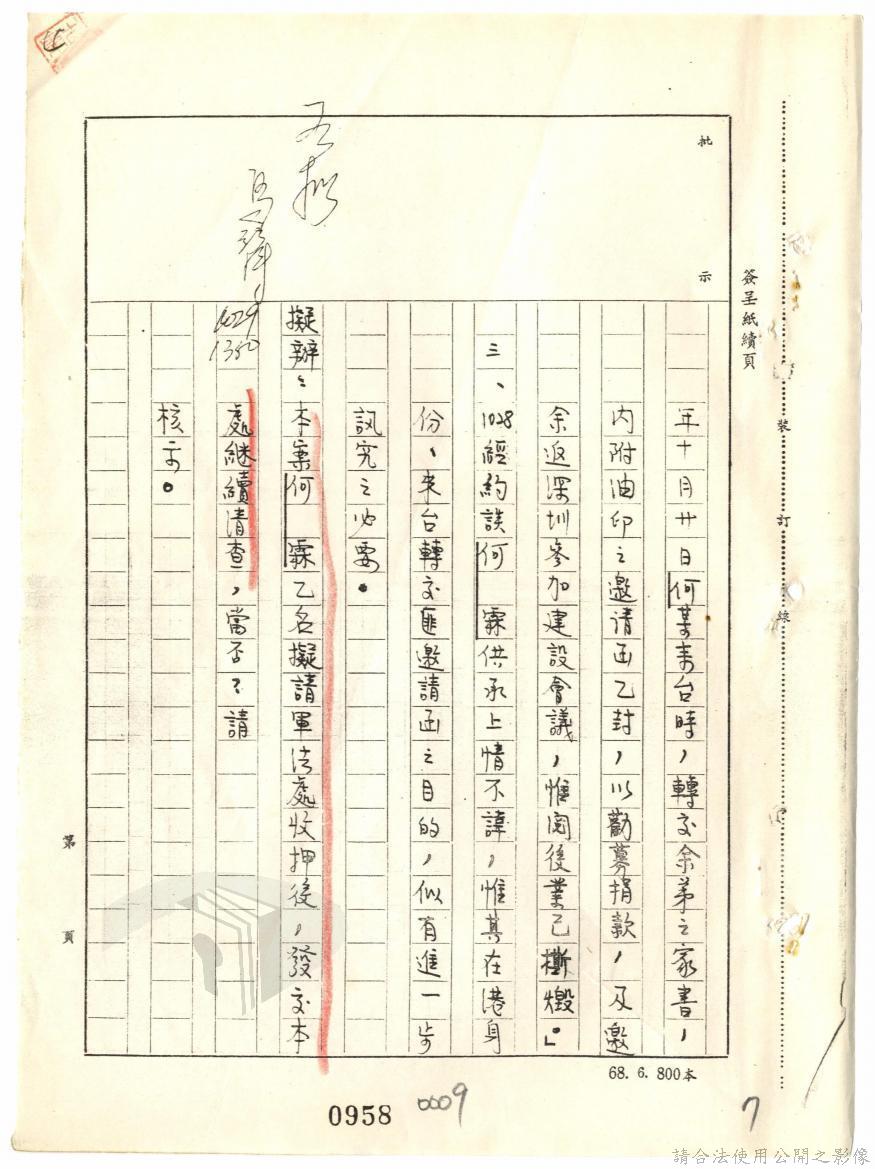 簽呈紙續頁
裝訂線
批示
年十月廿日何某来台時，轉交余弟之家書，
内附油印之邀请函乙封，以勸募捐款，及邀
余返深圳參加建設會議，惟閱後業已撕燬。」
三、1028經約談何 霖供承上情不諱，惟其在港身
份、来台轉交匪邀請函之目的，似有進一步
訊究之必要。
擬辦：本案何 霖乙名擬請軍法處收押後，發交本
處継續清查，當否？請
核示。
1029
1350
第 頁
68. 6. 800本
0958
0009
7
請合法使用公開之影像